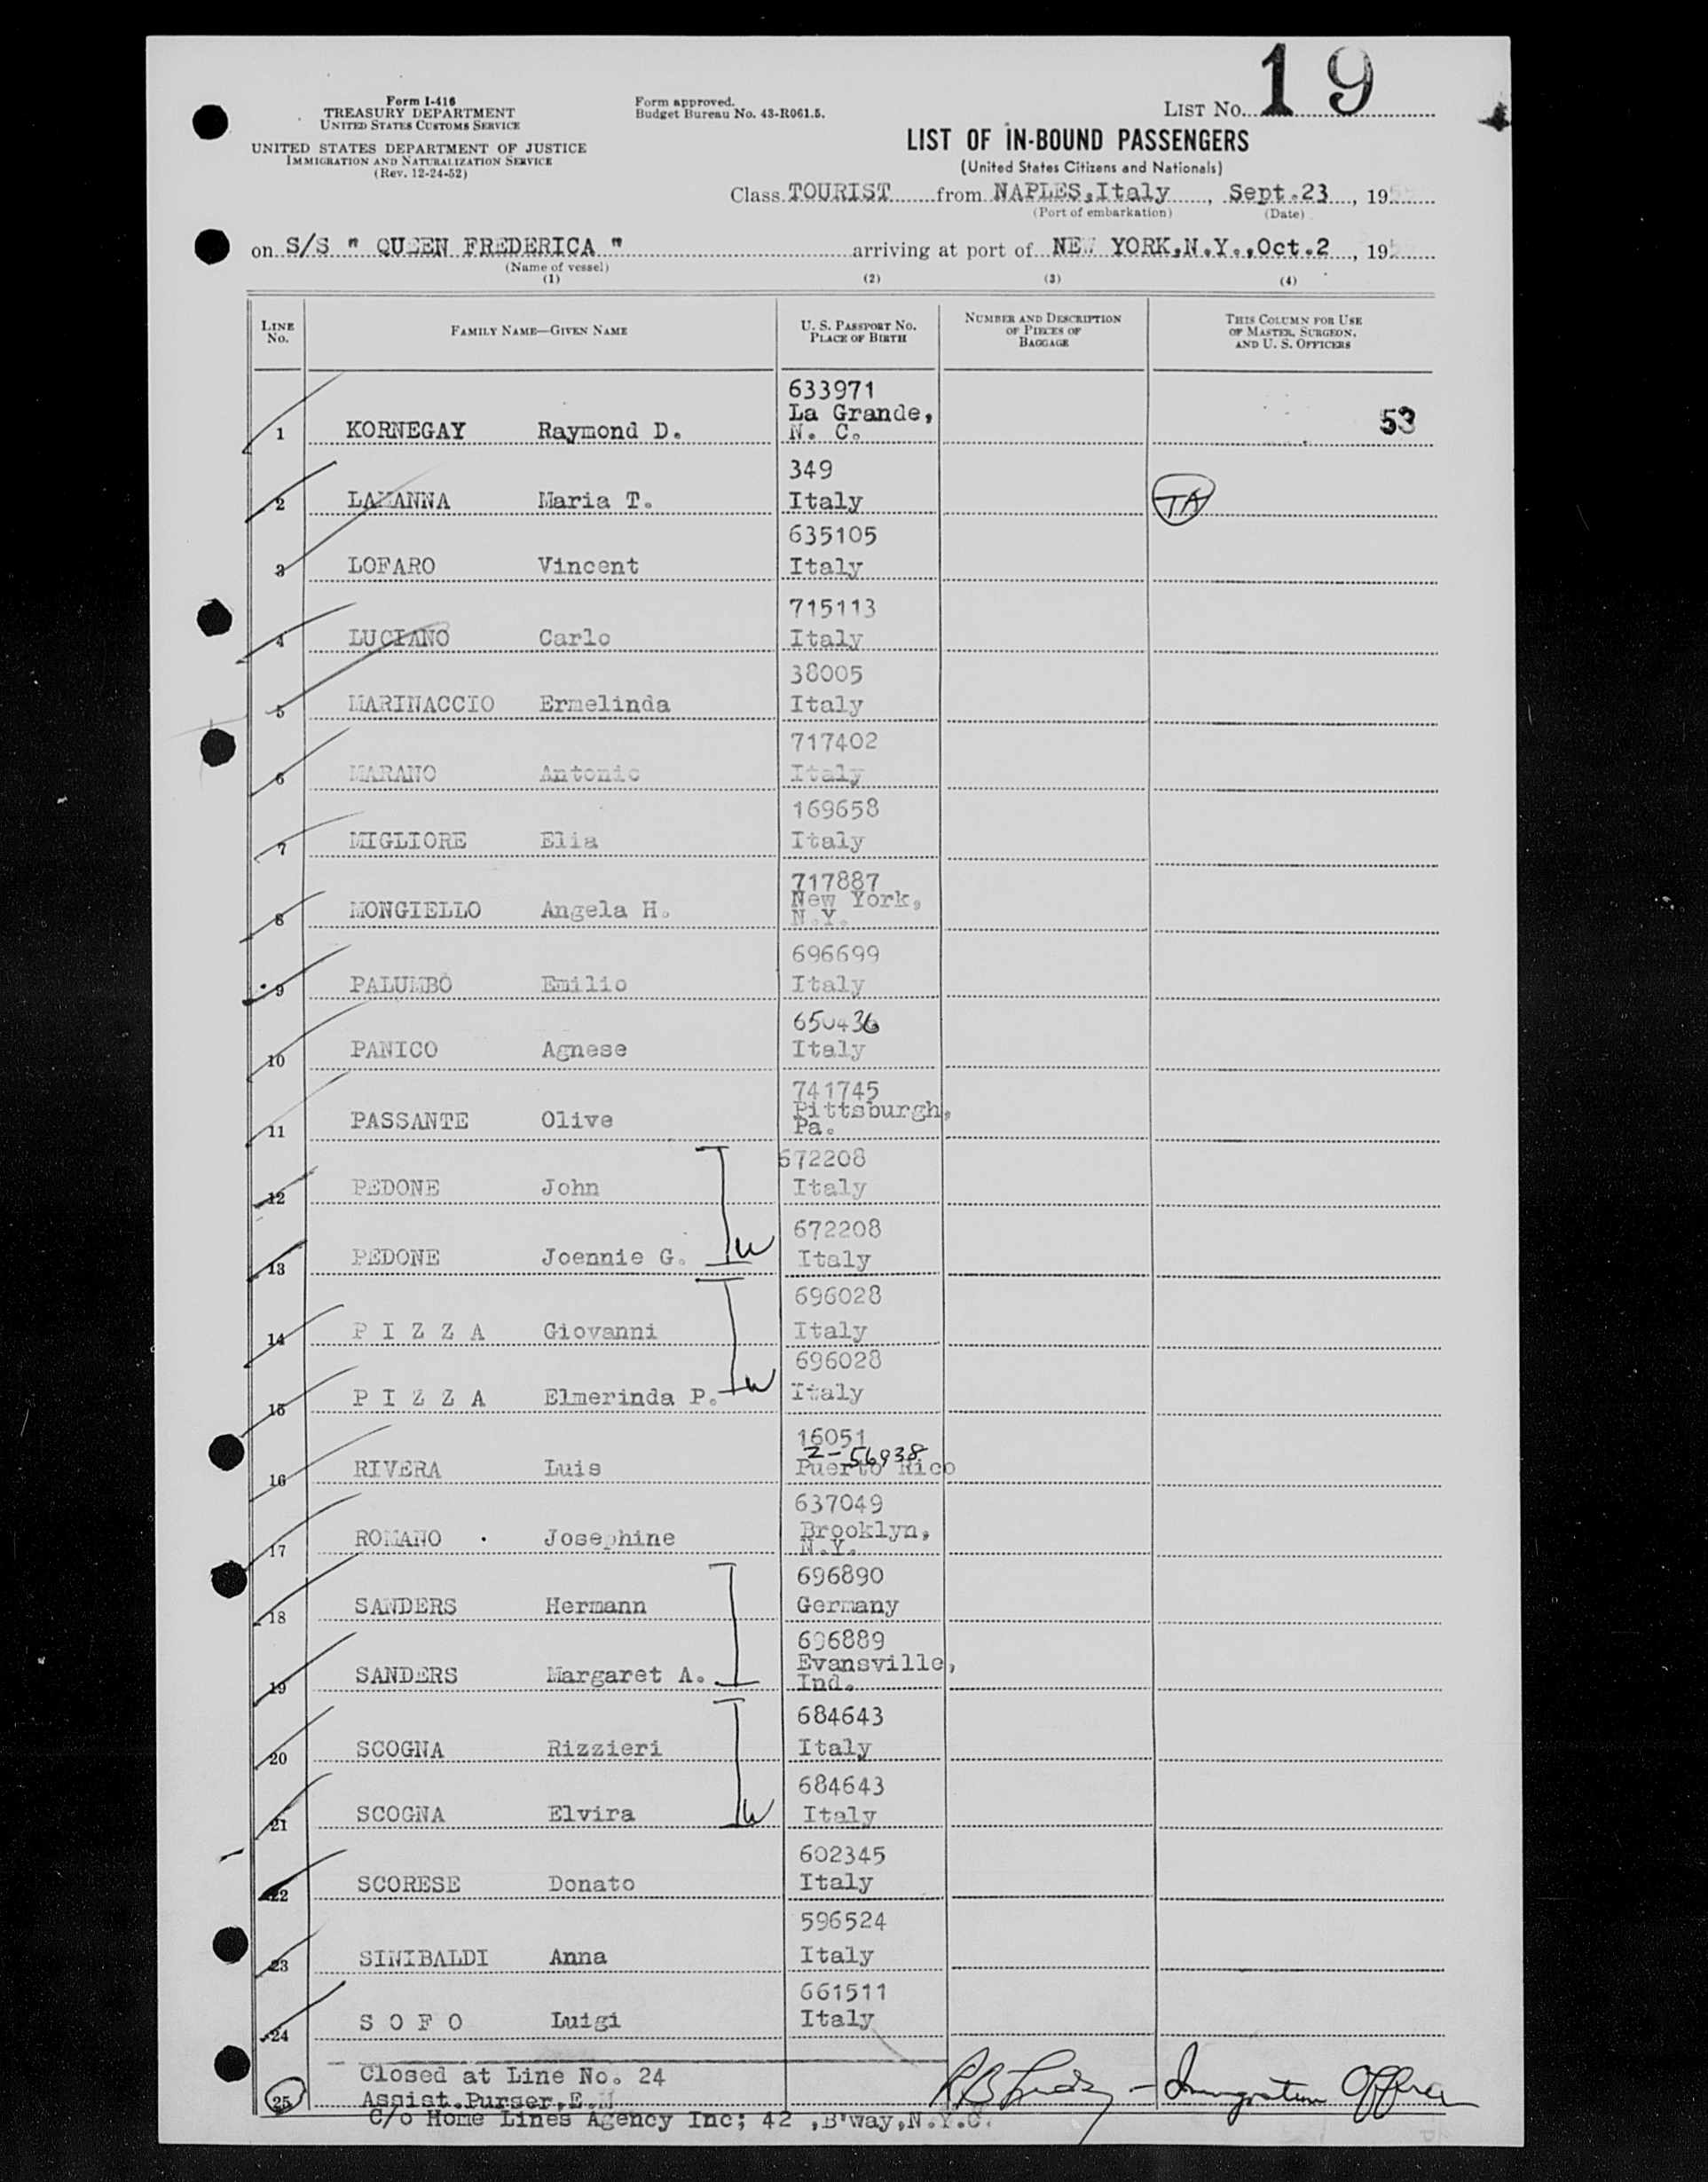 19
Form I-416
TREASURY DEPARTMENT
UNITED STATES CUSTOMS SERVICE
UNITED STATES DEPARTMENT OF JUSTICE
IMMIGRATION AND NATURALIZATION SERVICE
(Rev. 12-24-52)
Form approved.
Budget Bureau No. 43-R061.5.
LIST NO.
LIST OF IN-BOUND PASSENGERS
(United States Citizens and Nationals)
Class TOURIST from NAPLES,Italy, Sept.23, 195
(Port of embarkation) (Date)
on S/S " QUEEN FREDERICA " arriving at port of NEW YORK,N.Y.,Oct.2, 195
(Name of vessel)
(1) (2) (3) (4)
LINE NO. FAMILY NAME—GIVEN NAME U. S. PASSPORT NO. PLACE OF BIRTH NUMBER AND DESCRIPTION OF PIECES OF BAGGAGE THIS COLUMN FOR USE OF MASTER, SURGEON, AND U. S. OFFICERS
633971
La Grande,
1 KORNEGAY Raymond D. N. C. 53
349
2 LAMANNA Maria T. Italy TA
635105
3 LOFARO Vincent Italy
715113
4 LUCIANO Carlo Italy
38005
5 MARINACCIO Ermelinda Italy
717402
6 MARANO Antonio Italy
169658
7 MIGLIORE Elia Italy
717887
New York,
8 MONGIELLO Angela H. N.Y.
696699
9 PALUMBO Emilio Italy
650436
10 PANICO Agnese Italy
741745
Pittsburgh,
11 PASSANTE Olive Pa.
672208
12 PEDONE John Italy
672208
13 PEDONE Joennie G. W Italy
696028
14 P I Z Z A Giovanni Italy
696028
15 P I Z Z A Elmerinda P. W Italy
16051
2-56938
16 RIVERA Luis Puerto Rico
637049
Brooklyn,
17 ROMANO Josephine N.Y.
696890
18 SANDERS Hermann Germany
696889
Evansville,
19 SANDERS Margaret A. Ind.
684643
20 SCOGNA Rizzieri Italy
684643
21 SCOGNA Elvira W Italy
602345
22 SCORESE Donato Italy
596524
23 SINIBALDI Anna Italy
661511
24 S O F O Luigi Italy
Closed at Line No. 24
25 Assist.Purser,E.M Immigration Officer
C/o Home Lines Agency Inc; 42 ,B'way,N.Y.C.